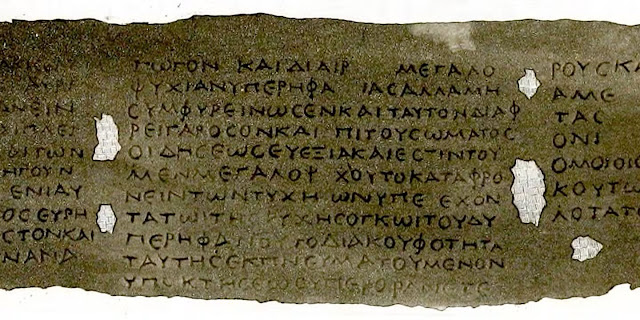 ΔΝΕΙΝ
ΗΓΟΥΝ
ΕΝΙΑΥ
ΟCΕΥΡΗ
CΤΟΝΚΑΙ
ΝΑΝΔ
ΓΩΓΟΝ ΚΑΙΔΙΑΙΡ ΜΕΓΑΛΟ
ΨΥΧΙΑΝΥΠΕΡΗΦΑ ΙΑCΑΛΛΑΜΗ
CΥΜΦΥΡΕΙΝΩCΕΝΚΑΙΤΑΥΤΟΝΔΙΑΦ
ΡΕΙΓΑΡΟCΟΝΚΑΙ ΠΙΤΟΥCΩΜΑΤΟC
ΟΙΔΗCΕΩCΕΥΕΞΙΑΚΑΙΕCΤΙΝΤΟΥ
ΜΕΝΜΕΓΑΛΟΨ ΧΟΥΤΟΚΑΤΑΦΡΟ
ΝΕΙΝΤΩΝΤΥΧΗ ΩΝΥΠΕ ΕΧΟΝ
ΤΑΤΩΙΤΗC ΥΧΗCΟΓΚΩΙΤΟΥΔΥ
ΠΕΡΗΦΑΝΟΥ ΤΟΔΙΑΚΟΥΦΟΤΗΤΑ
ΤΑΥΤΗCΕΚΠΝΕΥΜΑΤΟΥΜΕΝΟΝ
ΡΟΥCΚΑ
ΑΜΕ
ΤΑC
ΟΝΙ
ΟΜΟΙΟΙ
ΚΟΥΤΩ
ΛΟΤΑΤ